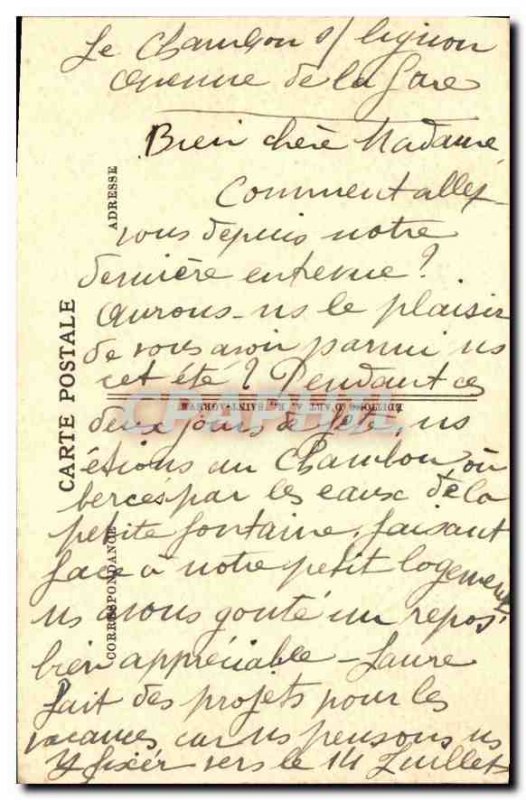 Le Chambon s/ lignon
avenue de la Gare
Bien chère Madame
Comment allez
vous depuis notre
dernière entrevue ?
Aurons-ns le plaisir
de vous avoir parmi ns
cet été ? Pendant ces
deux jours de fête, ns
étions au Chambon où
bercés par les eaux de la
petite fontaine, faisant
face à notre petit logement
ns avons gouté un repos
bien appréciable - Laure
fait des projets pour les
vacances car ns pensons ns
y fixer vers le 14 Juillet
ADRESSE
CARTE POSTALE
CORRESPONDANCE